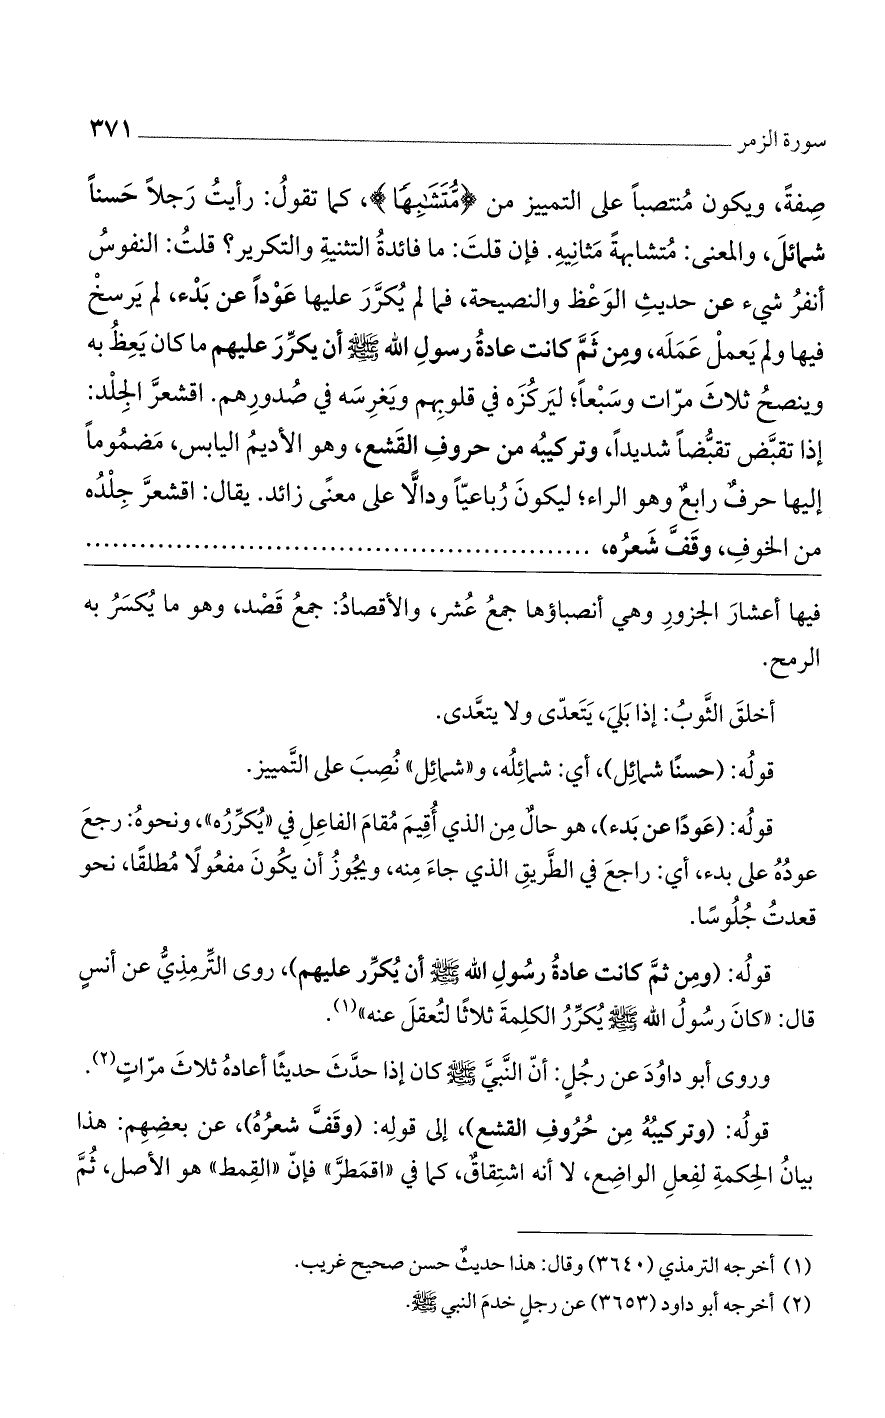 سورة الزمر ٣٧١
صِفةً، ويكون مُنتصباً على التمييز من ﴿مُّتَشَٰبِهًا﴾، كما تقولُ: رأيتُ رَجلاً حَسناً
شمائلَ، والمعنى: مُتشابهةً مَثانِيهِ. فإن قلتَ: ما فائدةُ التثنيةِ والتكريرِ؟ قلتُ: النفوسُ
أنفرُ شيء عن حديثِ الوَعْظ والنصيحة، فما لم يُكرَّرَ عليها عَوْداً عن بَدْء، لم يَرسخْ
فيها ولم يَعملْ عَمَلَه، ومِن ثَمَّ كانت عادةُ رسولِ الله ﷺ أن يكرِّرَ عليهم ما كان يَعِظُ به
وينصحُ ثلاثَ مرّات وسَبْعاً؛ ليَركُزَه في قلوبِهم ويَغرِسَه في صُدورِهم. اقشعرَّ الجِلْد:
إذا تقبَّض تقبُّضاً شديداً، وتركيبُه من حروفِ القَشع، وهو الأديمُ اليابس، مَضمُوماً
إليها حرفٌ رابعٌ وهو الراء؛ ليكونَ رُباعيّاً ودالًّا على معنًى زائد. يقال: اقشعرَّ جِلْدُه
من الخوفِ، وقَفَّ شَعرُه، ........................................................
فيها أعشارَ الجزورِ وهي أنصباؤها جمعُ عُشر، والأقصادُ: جمعُ قَصْد، وهو ما يُكسَرُ به
الرمح.
أخلقَ الثَّوبُ: إذا بَليَ، يَتَعدّى ولا يتعَّدى.
قولُه: (حسنًا شمائل)، أي: شمائلُه، و«شمائل» نُصِبَ على التَّمييز.
قولُه: (عَودًا عن بَدء)، هو حالٌ مِن الذي أُقِيمَ مُقامَ الفاعلِ في «يُكرِّرُه»، ونحوهُ: رجعَ
عودُهُ على بدء، أي: راجعَ في الطَّريقِ الذي جاءَ مِنه، ويجُوزُ أن يكُونَ مفعُولًا مُطلقًا، نحو
قعدتُ جُلُوسًا.
قولُه: (ومِن ثمَّ كانت عادةُ رسُولِ الله ﷺ أن يُكرِّر عليهم)، روى التِّرمِذيُّ عن أنسٍ
قال: «كانَ رسُولُ الله ﷺ يُكرِّرُ الكلِمةَ ثلاثًا لتُعقلَ عنه»(١).
وروى أبو داوُدَ عن رجُلٍ: أنّ النَّبيَّ ﷺ كان إذا حدَّثَ حديثًا أعادهُ ثلاثَ مرّاتٍ(٢).
قولُه: (وتركيبُهُ مِن حُرُوفِ القشع)، إلى قولِه: (وقَفَّ شعرُهُ)، عن بعضِهِم: هذا
بيانُ الحِكمةِ لفِعلِ الواضِع، لا أنه اشتِقاقٌ، كما في «اقمَطرَّ» فإنّ «القِمط» هو الأصل، ثُمَّ
(١) أخرجه الترمذي (٣٦٤٠) وقال: هذا حديثٌ حسن صحيح غريب.
(٢) أخرجه أبو داود (٣٦٥٣) عن رجلٍ خدمَ النبي ﷺ.